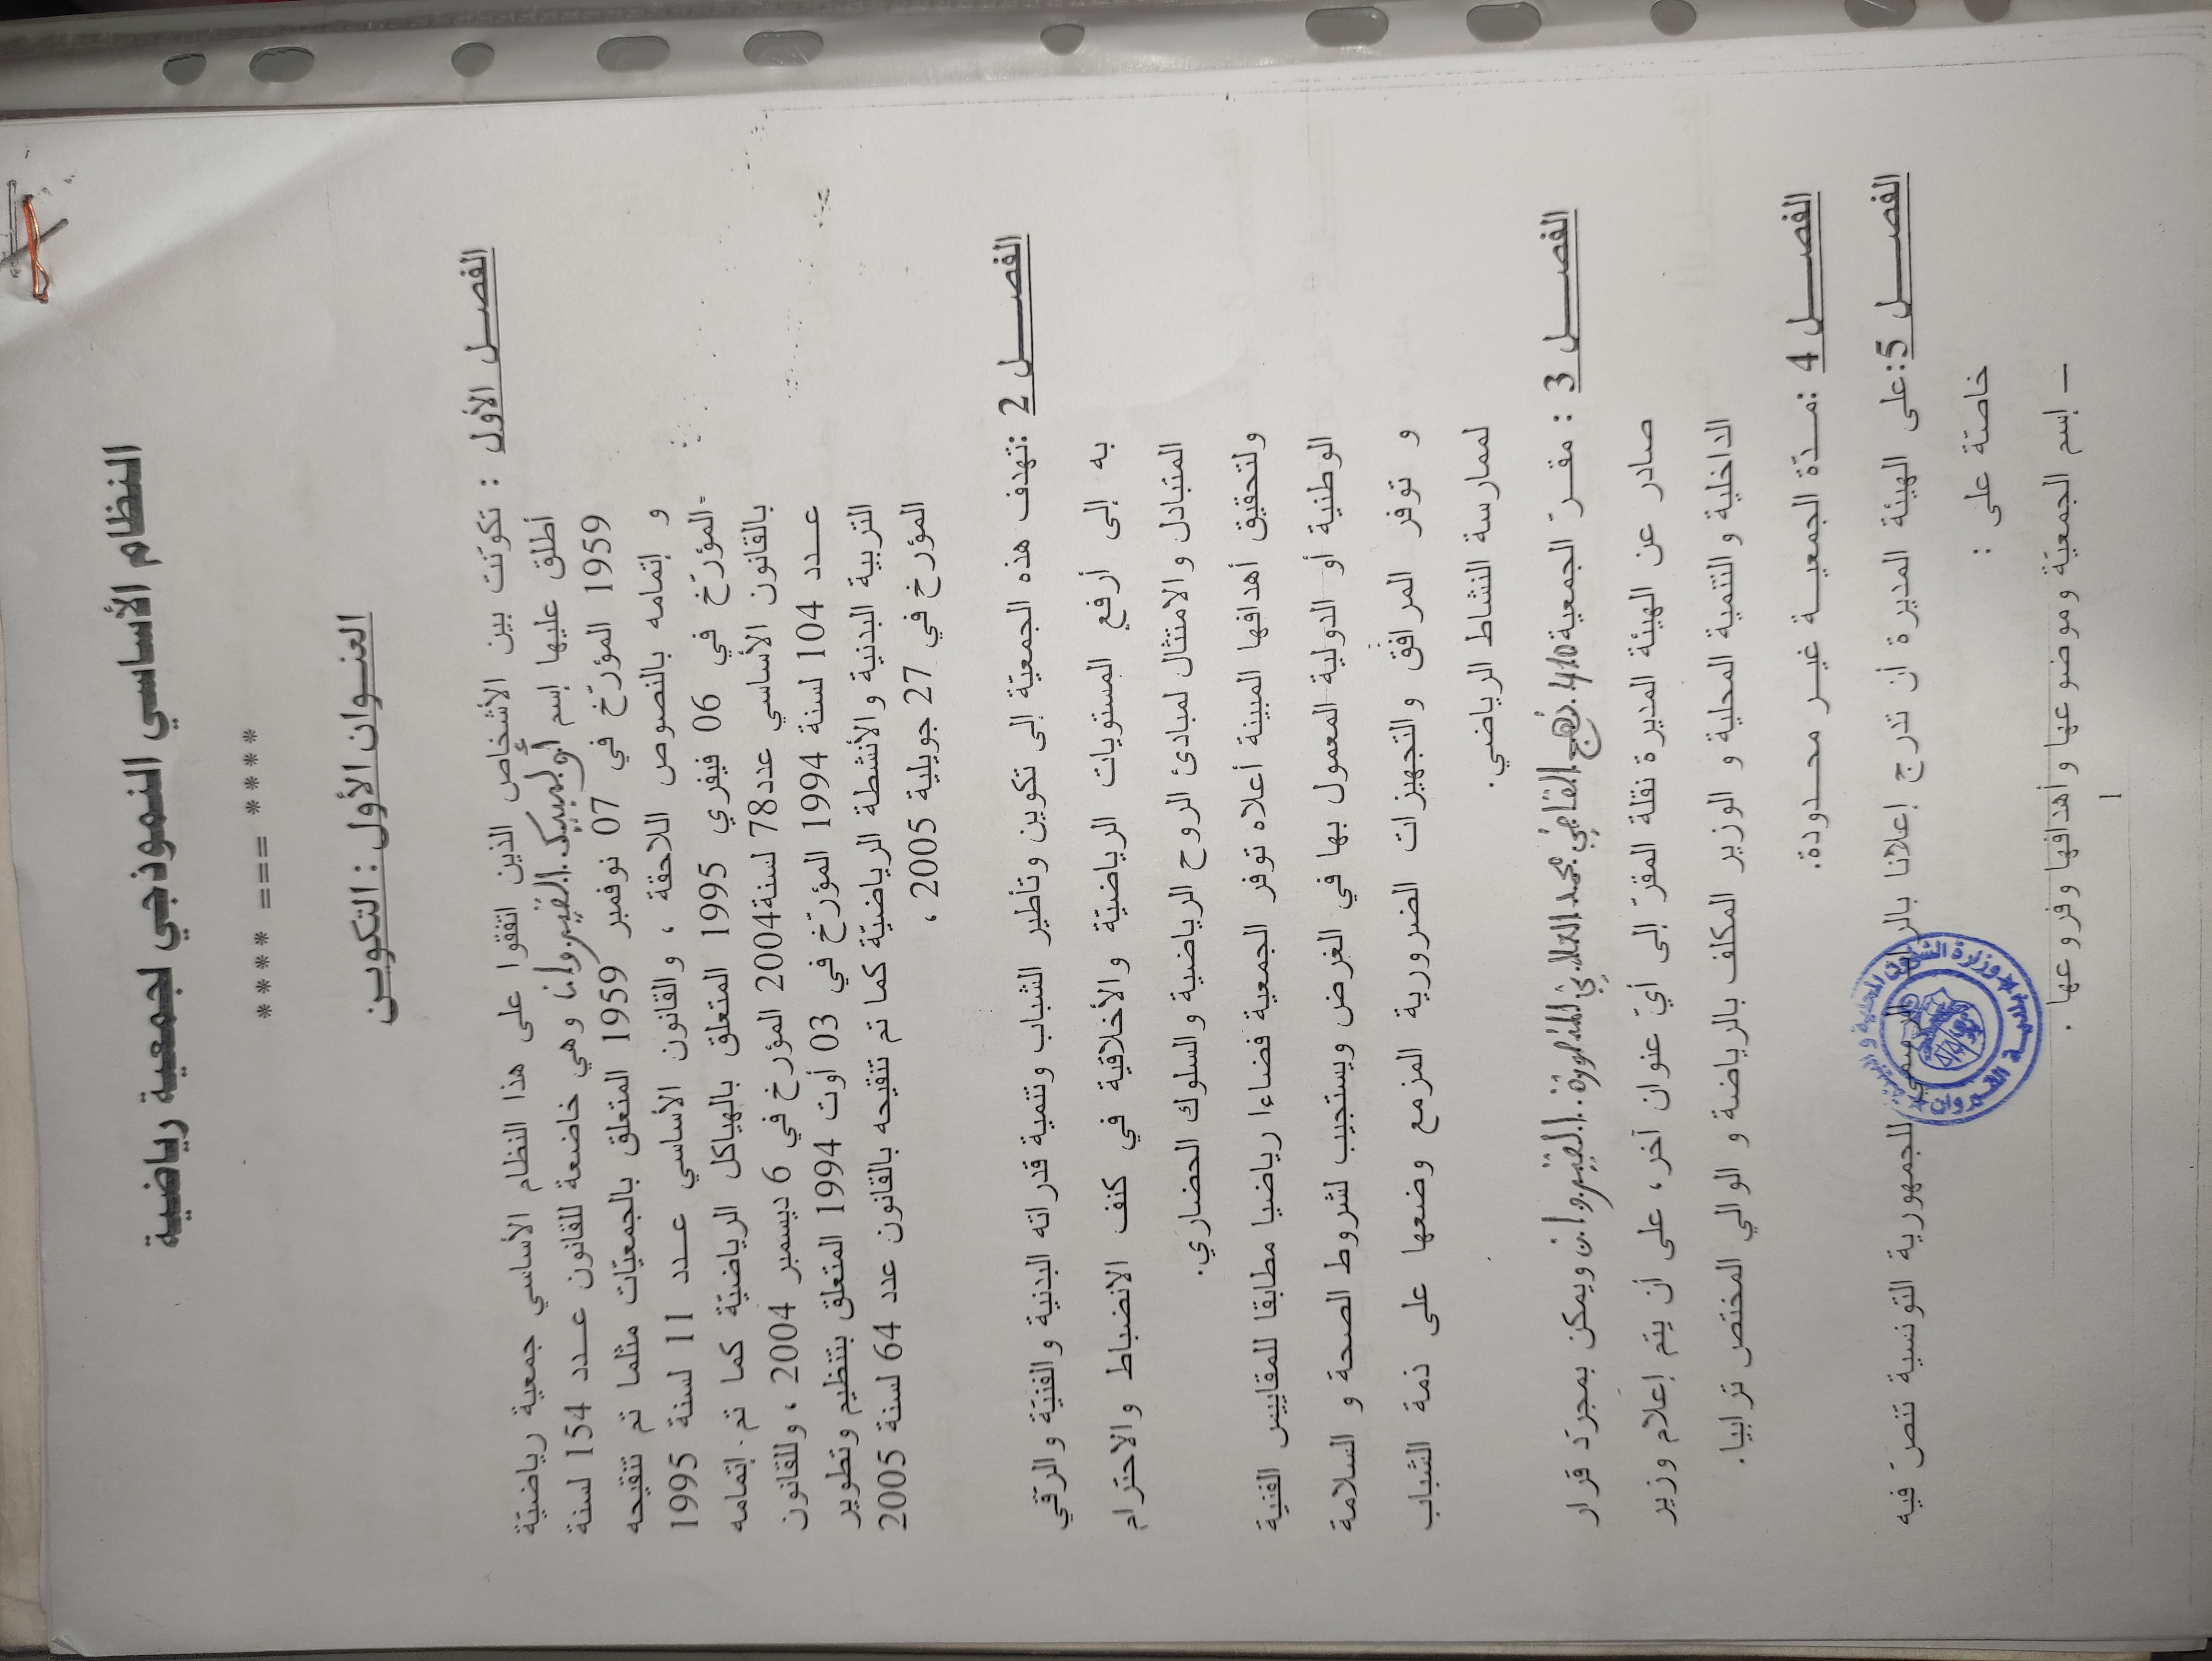 النظام الأساسي النموذجي لجمعية رياضية
**** === ****
العنـوان الأول : التكويـن
الفصـــل الأول : تكوّنت بين الأشخاص الذين اتفقوا على هذا النظام الأساسي جمعية رياضيّة
أطلق عليها إسم أولمبيك القيروان وهي خاضعة للقانون عــدد 154 لسنة
1959 المؤرّخ في 07 نوفمبر 1959 المتعلق بالجمعيّات مثلما تم تنقيحه
و إتمامه بالنصوص اللاحقة ، والقانون الأساسي عــدد 11 لسنة 1995
المؤرّخ في 06 فيفري 1995 المتعلق بالهياكل الرياضيّة كما تم إتمامه
بالقانون الأساسي عدد78 لسنة2004 المؤرخ في 6 ديسمبر 2004 ، وللقانون
عــدد 104 لسنة 1994 المؤرّخ في 03 أوت 1994 المتعلق بتنظيم وتطوير
التربية البدنية والأنشطة الرياضيّة كما تم تنقيحه بالقانون عدد 64 لسنة 2005
المؤرخ في 27 جويلية 2005 ،
الفصـــل 2 :تهدف هذه الجمعيّة إلى تكوين وتأطير الشباب وتنمية قدراته البدنية والفنيّة والرقي
به إلى أرفع المستويات الرياضيّة والأخلاقية في كنف الانضباط والاحترام
المتبادل والامتثال لمبادئ الروح الرياضية والسلوك الحضاري.
ولتحقيق أهدافها المبينة أعلاه توفر الجمعية فضاءا رياضيا مطابقا للمقاييس الفنية
الوطنية أو الدولية المعمول بها في الغرض ويستجيب لشروط الصحة و السلامة
و توفر المرافق والتجهيزات الضرورية المزمع وضعها على ذمة الشباب
لممارسة النشاط الرياضي.
الفصـــل 3 : مقـرّ الجمعية نهج القاضي محمد العلاني المنصورة القيروان ويمكن بمجرّد قرار
صادر عن الهيئة المديرة نقلة المقرّ إلى أيّ عنوان آخر، على أن يتم إعلام وزير
الداخلية و التنمية المحلية و الوزير المكلف بالرياضة و الوالي المختص ترابيا.
الفصـــل 4 :مــدّة الجمعيــة غيــر محــدودة.
الفصـــل 5 :على الهيئة المديرة أن تدرج إعلانا بالرائد الرسمي للجمهورية التونسية تنصّ فيه
خاصّة على :
– إسم الجمعيّة وموضوعها وأهدافها وفروعها .
1